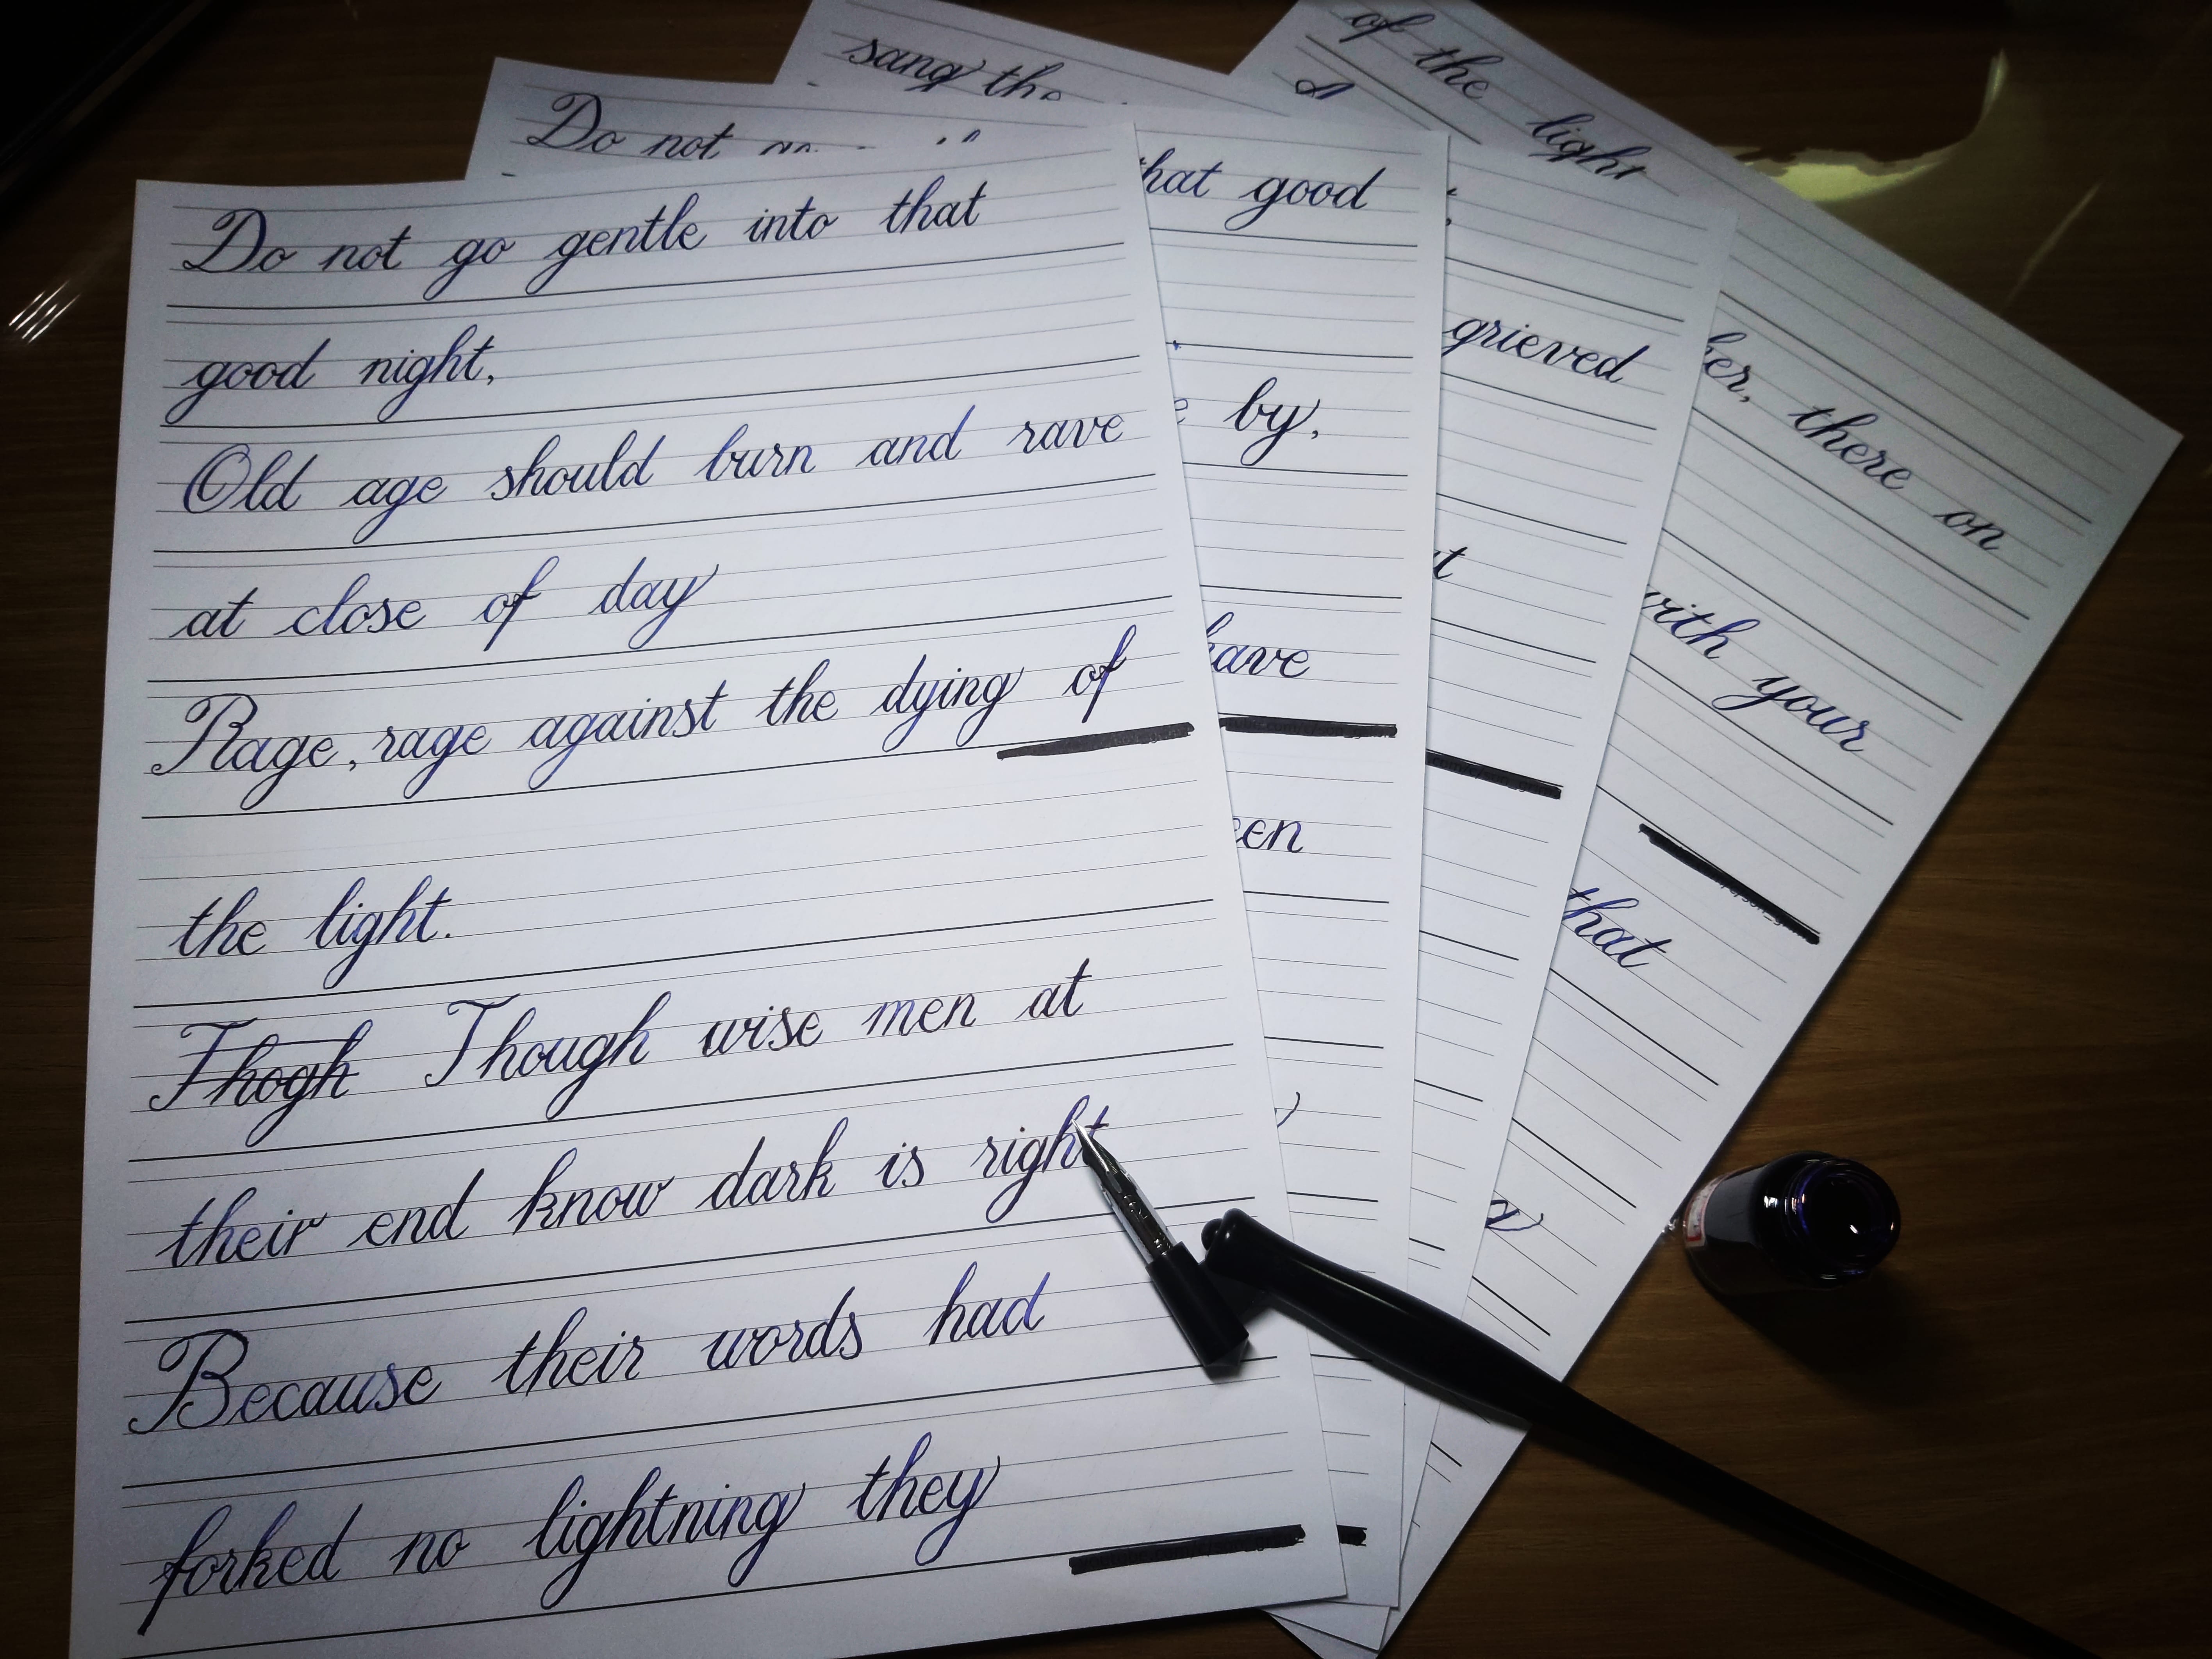 Do not go gentle into that
good night,
Old age should burn and rave
at close of day
Rage, rage against the dying of
the light.
Thogh Though wise men at
their end know dark is right
Because their words had
forked no lightning they
Do not
that good
by,
have
sang the
grieved
of the light
there on
with your
that